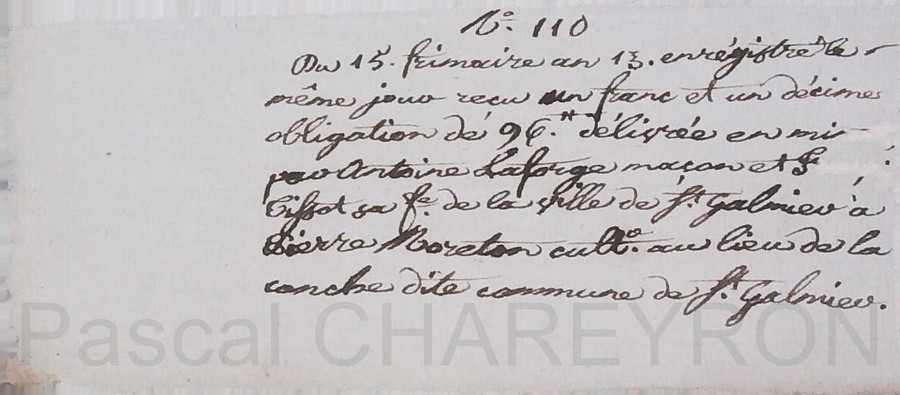 N.° 110
Du 15. frimaire an 13. enrégistré le
même jour reçu un franc et un décime
obligation de 96.tt délivrée en mi-
par Antoine Laforge maçon et
Tissot sa f.e de la ville de S.t Galmier à
Pierre Moreton cult.r au lieu de la
conche dite commune de S.t Galmier.
Pascal CHAREYRON